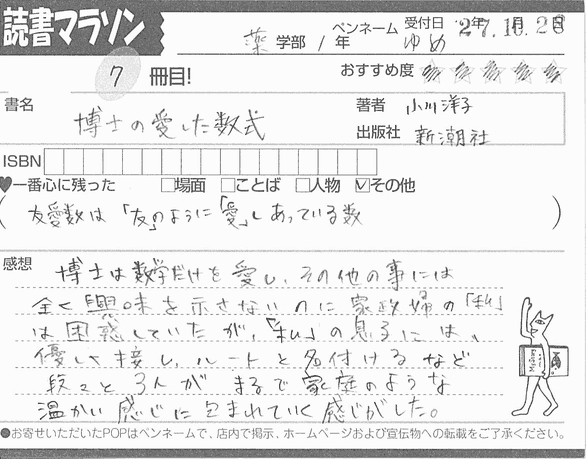 読書マラソン
薬 学部 / 年 ペンネーム ゆめ 受付日 27年10月28日
7 冊目! おすすめ度 ★★★★★
書名 博士の愛した数式
著者 小川洋子
出版社 新潮社
ISBN
♥一番心に残った □場面 □ことば □人物 ☑その他
( 友愛数は「友」のように「愛」しあっている数 )
感想 博士は数学だけを愛し、その他の事には
全く興味を示さないのに家政婦の「私」
は困惑していたが、「私」の息子には、
優しく接し、ルートと名付けるなど
段々と3人がまるで家庭のような
温かい感じに包まれていく感じがした。
●お寄せいただいたPOPはペンネームで、店内で掲示、ホームページおよび宣伝物への転載をご了承ください。